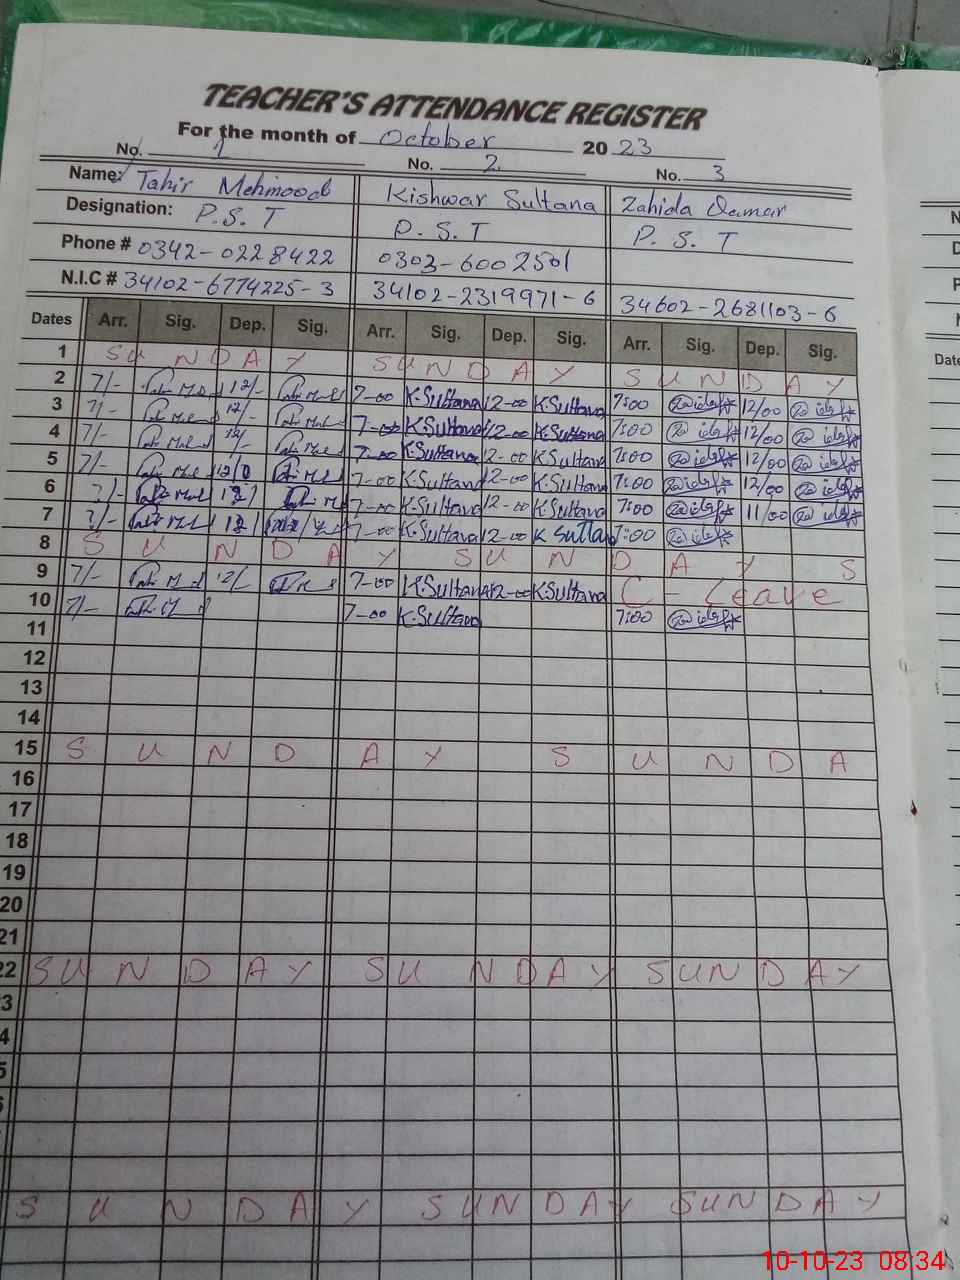 TEACHER'S ATTENDANCE REGISTER
For the month of October 2023
No. 1 No. 2 No. 3
Name: Tahir Mehmood Kishwar Sultana Zahida Qamar
Designation: P.S.T P.S.T P.S.T
Phone # 0342-0228422 0303-6002501
N.I.C # 34102-6774225-3 34102-2319971-6 34602-2681103-6
Dates Arr. Sig. Dep. Sig. Arr. Sig. Dep. Sig. Arr. Sig. Dep. Sig.
1 SUNDAY SUNDAY SUNDAY
2 7/- 12/- 7-00 K.Sultana 12-00 K.Sultana 7:00 12/00
3 7/- 12/- 7-00 K.Sultana 12-00 K.Sultana 7:00 12/00
4 7/- 12/- 7-00 K.Sultana 12-00 K.Sultana 7:00 12/00
5 7/- 7-00 K.Sultana 12-00 K.Sultana 7:00 12/00
6 7/- 7-00 K.Sultana 12-00 K.Sultana 7:00 11/00
7 7/- 7-00 K.Sultana 12-00 K Sultana 7:00
8 SUNDAY SUNDAY S
9 7/- 12/- 7-00 K.Sultana 12-00 K.Sultana C-Leave
10 7/- 7-00 K.Sultana 7:00
11
12
13
14
15 SUNDAY SUNDA
16
17
18
19
20
21
22 SUNDAY SUNDAY SUNDAY
3
4
5
SUNDAY SUNDAY SUNDAY
Date
10-10-23 08:34